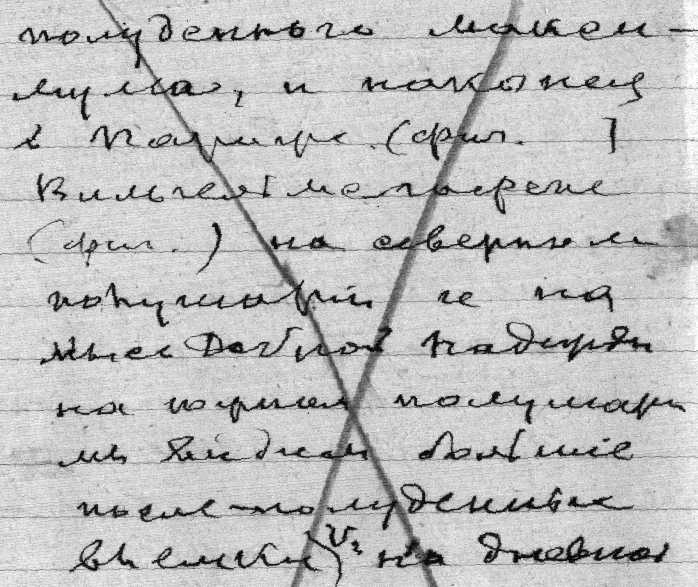 полуденного макси-
мума, и наконец
в Париже (фиг. )
Вильгельмсгафене
(фиг. ) на северном
полушарiи и на
мысе Доброй Надежды
на южном полушарi
мы видим большiе
после-полуденные
выемки на дневной